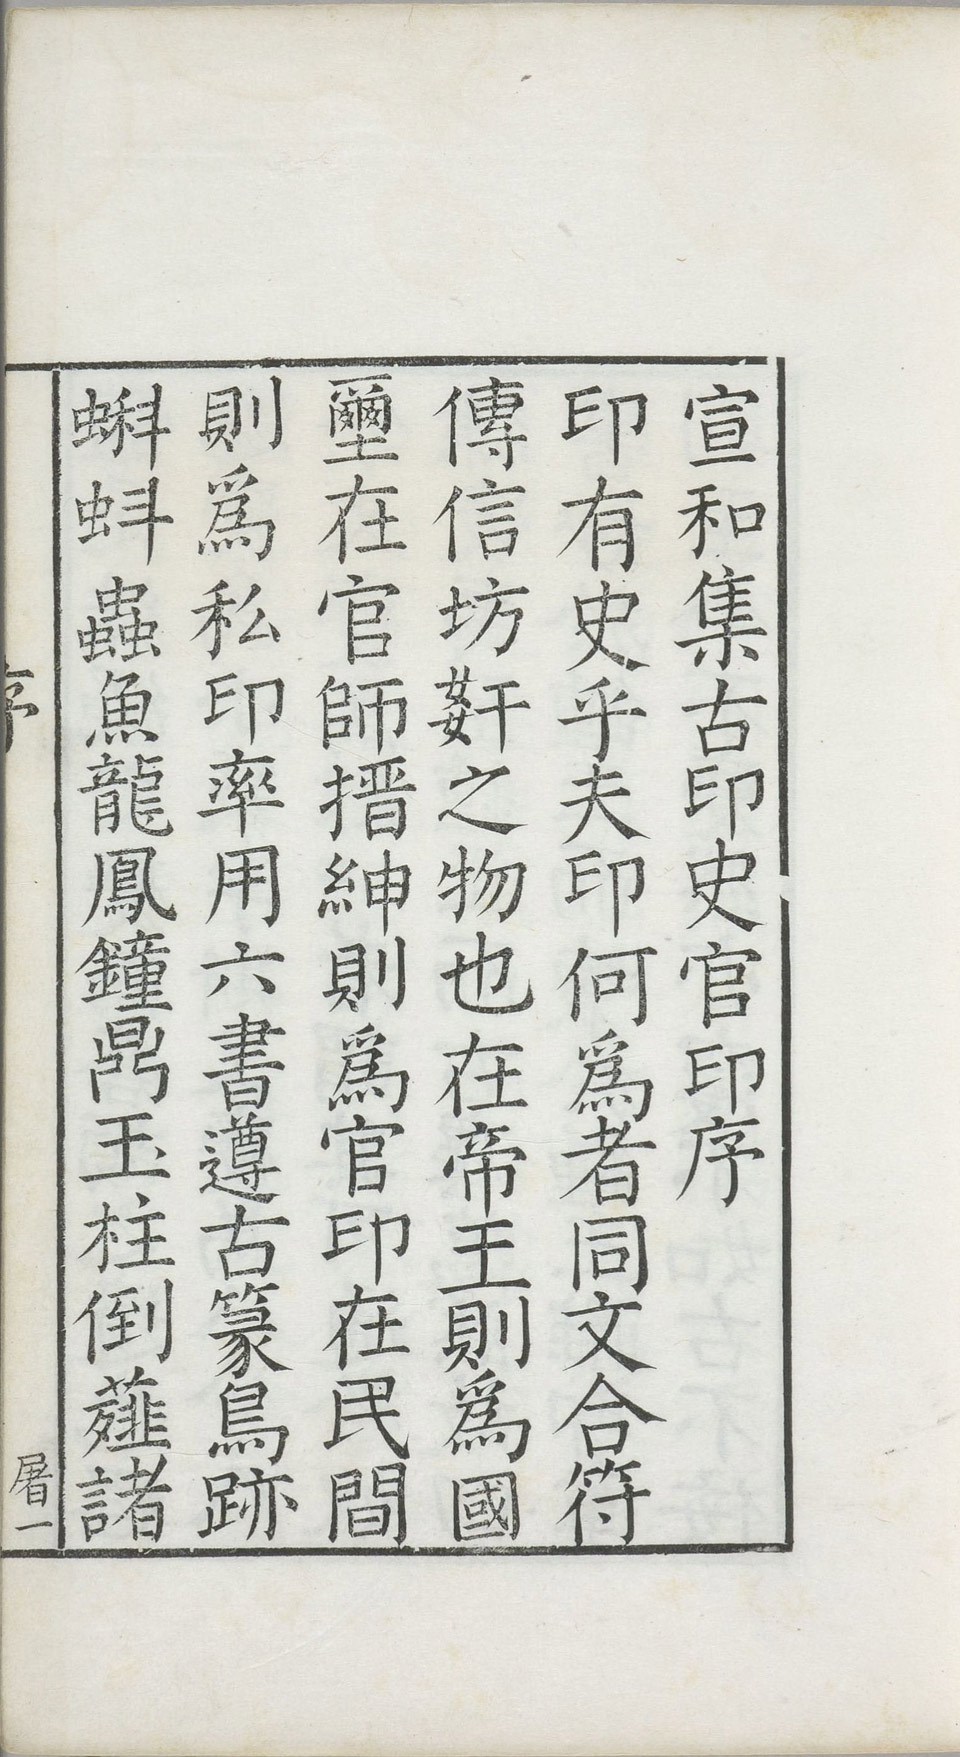 宣和集古印史官印序
印有史乎夫印何爲者同文合符
傳信坊姧之物也在帝王則爲國
壐在官師搢紳則爲官印在民間
則爲私印率用六書遵古篆鳥跡
蝌蚪蟲魚龍鳳鐘鼎玉柱倒薤諸
序
屠一